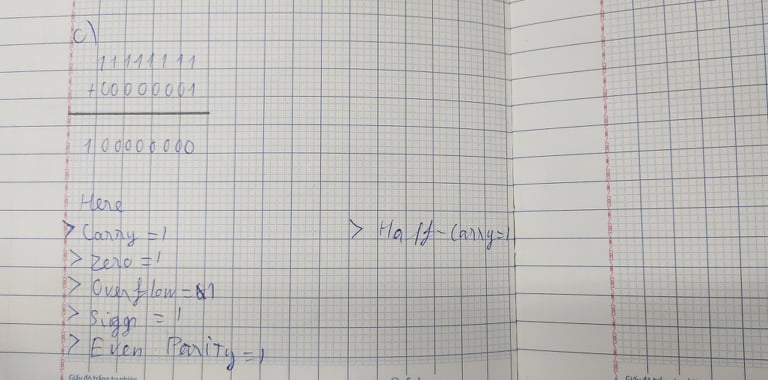 c)
11111111
+00000001
100000000
Here
> Carry = 1
> Zero = 1
> Overflow = 1
> Sign = 1
> Even Parity = 1
> Half-Carry = 1